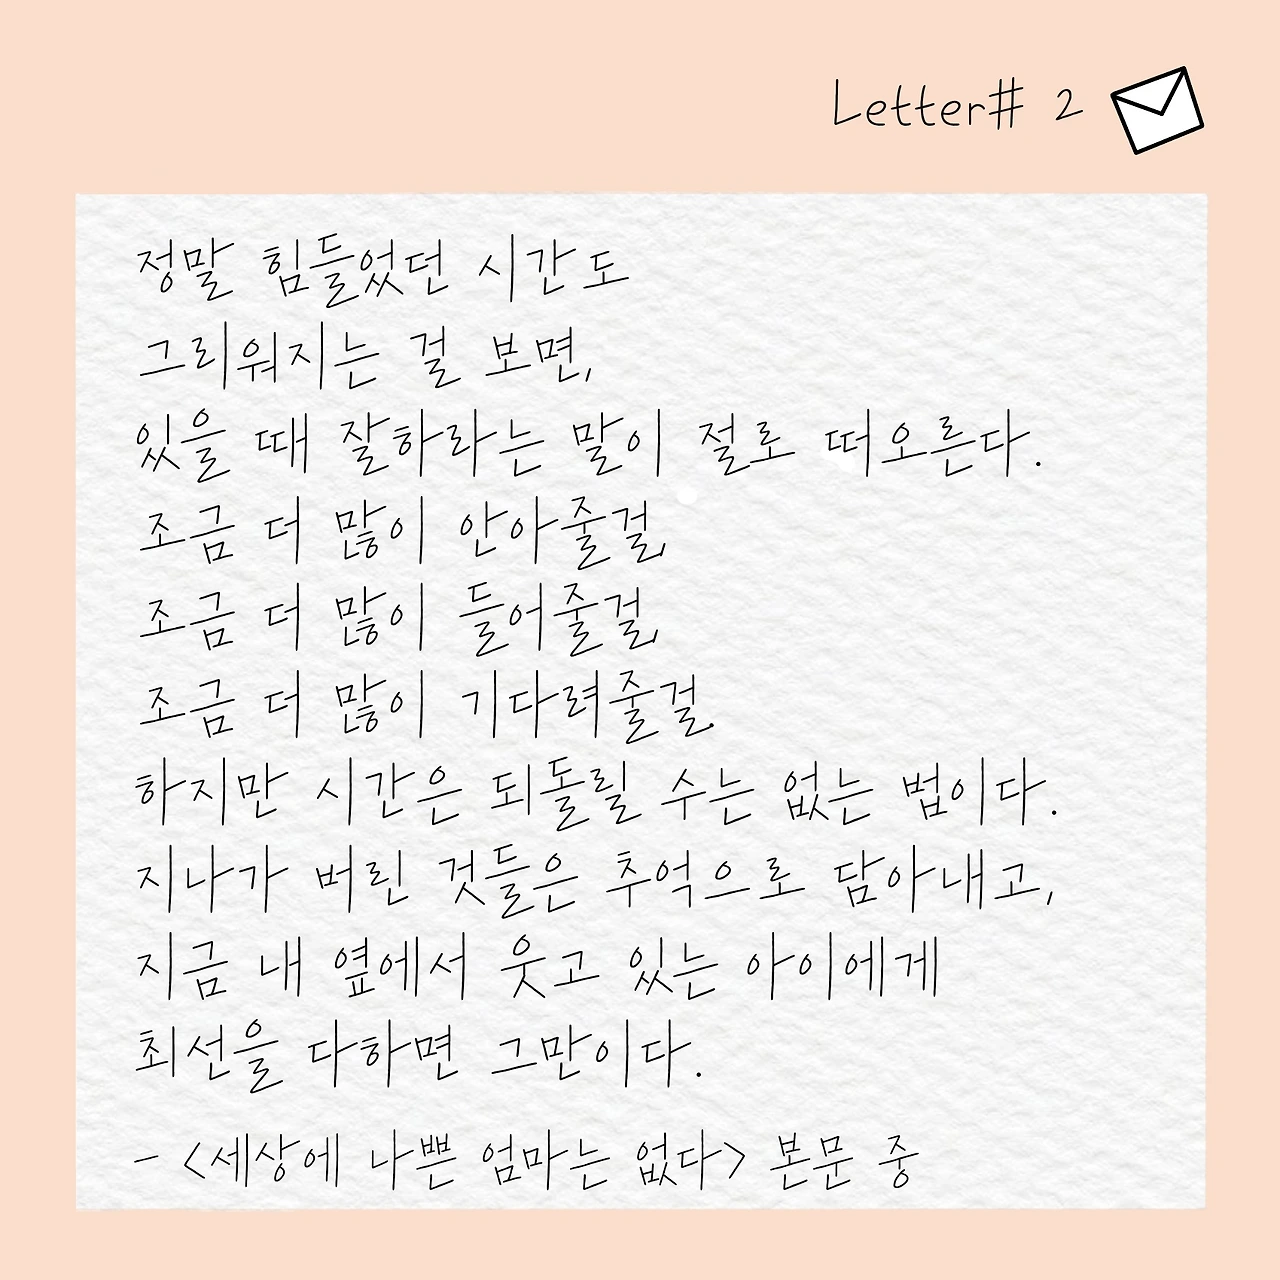 Letter# 2
정말 힘들었던 시간도
그리워지는 걸 보면,
있을 때 잘하라는 말이 절로 떠오른다.
조금 더 많이 안아줄걸,
조금 더 많이 들어줄걸,
조금 더 많이 기다려줄걸.
하지만 시간은 되돌릴 수는 없는 법이다.
지나가 버린 것들은 추억으로 담아내고,
지금 내 옆에서 웃고 있는 아이에게
최선을 다하면 그만이다.
- <세상에 나쁜 엄마는 없다> 본문 중